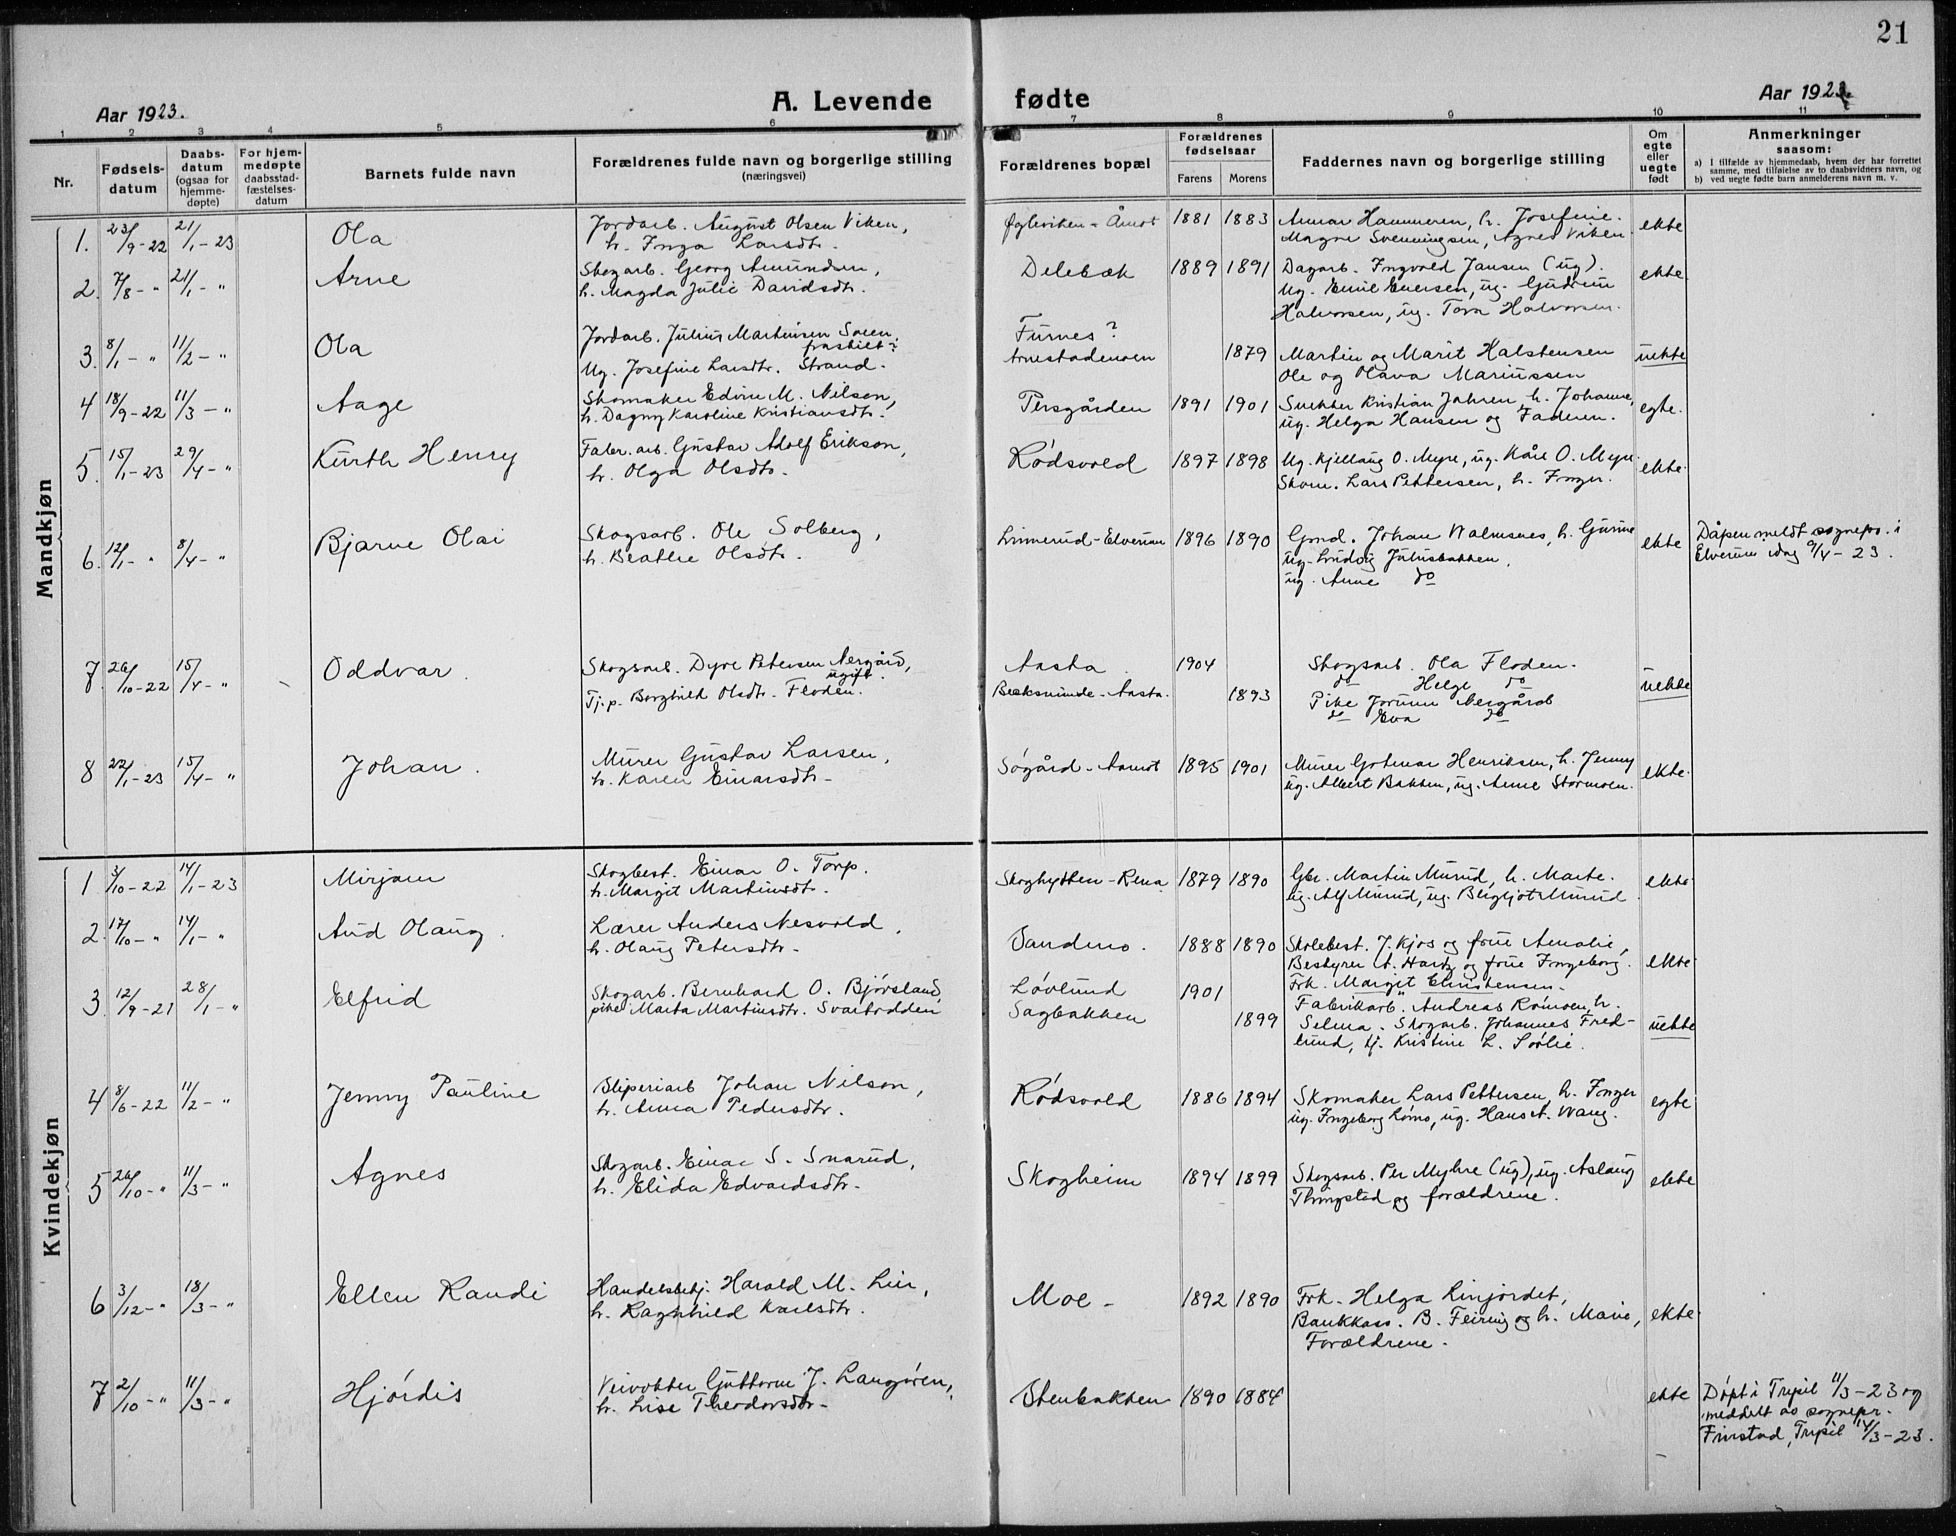 21
Aar 1923.
A. Levende fødte
Aar 1923.
1 2 3 4 5 6 7 8 9 10 11
Nr.
Fødsels-
datum
Daabs-
datum
(ogsaa for
hjemme-
døpte)
For hjem-
medøpte
daabsstad-
fæstelses-
datum
Barnets fulde navn
Forældrenes fulde navn og borgerlige stilling
(næringsvei)
Forældrenes bopæl
Forældrenes
fødselsaar
Farens Morens
Faddernes navn og borgerlige stilling
Om
egte
eller
uegte
født
Anmerkninger
saasom:
a) I tilfælde av hjemmedaab, hvem der har forrettet
samme, med tilføielse av to daabsvidners navn, og
b) ved uegte fødte barn anmelderens navn m. v.
Mandkjøn
1. 23/9-22 21/1-23 Ola Jordarb. August Olsen Viken, 1881 1883 Hammeren, h. Josefine. ekte
h. Inga Larsdtr. Magne Svenningsen, Agnes Viken
2. 7/8-" 21/1-" Arne Skogarb. Georg Amundsen, Delebæk 1889 1891 Dagarb. Ingvald Jansen (ug). ekte
h. Magda Julie Davidsdtr. Ug. Emil Evensen, ug. Gudrun
Halvorsen, ug. Tora Halvorsen.
3. 8/1-" 11/2-" Ola Jordarb. Julius Martinsen Soen, Furnes?
fraskilt
Ug. Josefine Larsdtr. Strand. Arnestadmoen 1879 Martin og Marit Halstensen uekte
Ole og Olava Mariussen
4 18/9-22 11/3-" Aage Skomaker Edvin M. Nilsen, Persgården 1891 1901 Snekker Kristian Jahren, h. Johanne, egte.
h. Dagny Karoline Kristiansdtr. ug. Helga Hansen og Faderen.
5. 15/1-23 29/4-" Kurth Henry Fabr. arb. Gustav Adolf Erikson, Rødsvold 1897 1898 Ug. Kjellaug O. Myre, ug. Kåre O. Myre. ekte.
h. Olga Olsdtr. Skom. Lars Pettersen, h. Inger.
6. 12/1-" 8/4-" Bjarne Olai Skogsarb. Ole Solberg, Linnerud-Elverum 1896 1890 Grnd. Johan Walmsnes, h. Gurine ekte Dåpen meldt sognepr. i
h. Beathe Olsdtr. ug. Ludvig Julusbakken, Elverum idag 9/4-23.
ug. Anne do
7. 26/10-22 15/4-" Oddvar. Skogsarb. Dyre Petersen Nergård, Aasta. 1904 Skogsarb. Ola Floden.
ugift. do Helge do
Tj.p. Borghild Olsdtr. Floden. Bæksminde-Aasta. 1893 Pike Jorunn Nergård uekte
do Eva do
8 22/1-23 15/4-" Johan. Murer Gustav Larsen, Søgård-Aamot 1895 1901 Murer Gotmar Henriksen, h. Jenny ekte.
h. Karen Einarsdtr. ug. Albert Bakken, ug. Anne Stormoen.
Kvindekjøn
1 3/10-22 14/1-23 Mirjam Skogbest. Einar O. Torp. Skoghytten-Rena 1879 1890 Gbr. Martin Murud, h. Marte. ekte
h. Margit Martinsdtr. ug. Alf Murud, ug. Bergljot Murud
2. 17/10-" 14/1-" Aud Olaug. Lærer Anders Nesvold, Sandmo. 1888 1890 Skolebest. J. Kjos og frue Amalie,
h. Olaug Petersdtr. Bestyrer A. Hartz og frue Ingeborg. ekte
Frk. Margit Christensen.
3. 12/9-21 28/1-" Elfrid Skogarb. Bernhard O. Bjørsland, Løvlund 1901 Fabrikarb. Andreas Rømoen, h.
pike Marta Martinsdtr. Svartodden Sagbakken 1899 Selma. Skogarb. Johannes Fred- uekte
lund, tj. Kristine L. Sørlie.
4 8/6-22 11/2-" Jenny Pauline Sliperiarb Johan Nilson, Rødsvold 1886 1894 Skomaker Lars Pettersen, h. Inger egte
h. Anna Pedersdtr. ug. Ingeborg Lømo, ug. Hans A. Wang.
5 26/10-" 11/3-" Agnes Skogarb. Einar S. Snarud, Skogheim 1894 1899 Skogsarb. Per Myhre (ug), ug. Aslaug ekte
h. Elida Edvardsdtr. Thingstad og forældrene.
6 3/12-" 18/3-" Ellen Randi Handelsbetj. Harald M. Lier, Moe- 1892 1890 Frk. Helga Linjordet,
h. Ragnhild Karlsdtr. Bankkass. B. Feiring og h. Marie, ekte
Forældrene.
7 2/10-" 11/3-" Hjørdis Veivokter Guttorm J. Langøren, Stenbakken 1890 1884 ekte Døpt i Trysil 11/3-23 og
h. Lise Theodorsdtr. meddelt av sognepr.
Finstad, Trysil 14/3-23.